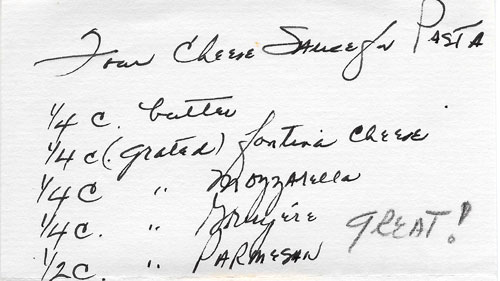 Four Cheese Sauce for PASTA
1/4 c. butter
1/4 c (. grated) fontina cheese
1/4 C " mozzarella
1/4 c. " Gruyére
1/2 c. " PARMESAN
GREAT!